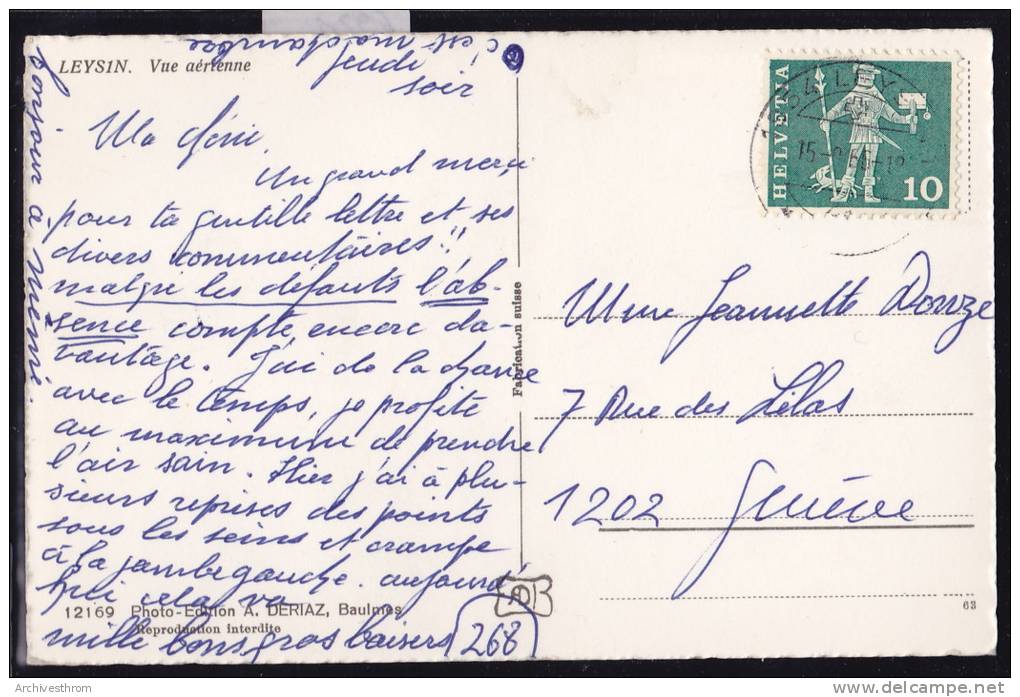 c'est ma chambre
LEYSIN. Vue aérienne
jeudi
soir
Ma
Un grand merci
pour ta gentille lettre et ses
divers commentaires!!
malgré les défauts l'ab-
sence compte encore da-
vantage. J'ai de la chance
avec le temps, je profite
au maximum de prendre
l'air sain. Hier j'ai à plu-
sieurs reprises des points
sous les seins et crampe
à la jambe gauche. aujourd'
hui cela va
mille bons gros baisers
268
bonjour à Mémé
12169 Photo-Edition A. DERIAZ, Baulmes
Reproduction interdite
Fabrication suisse
AD
HELVETIA
10
Mme Jeannette
7 Rue des Lilas
1202 Genève
63
Archivesthrom
www.delcampe.net